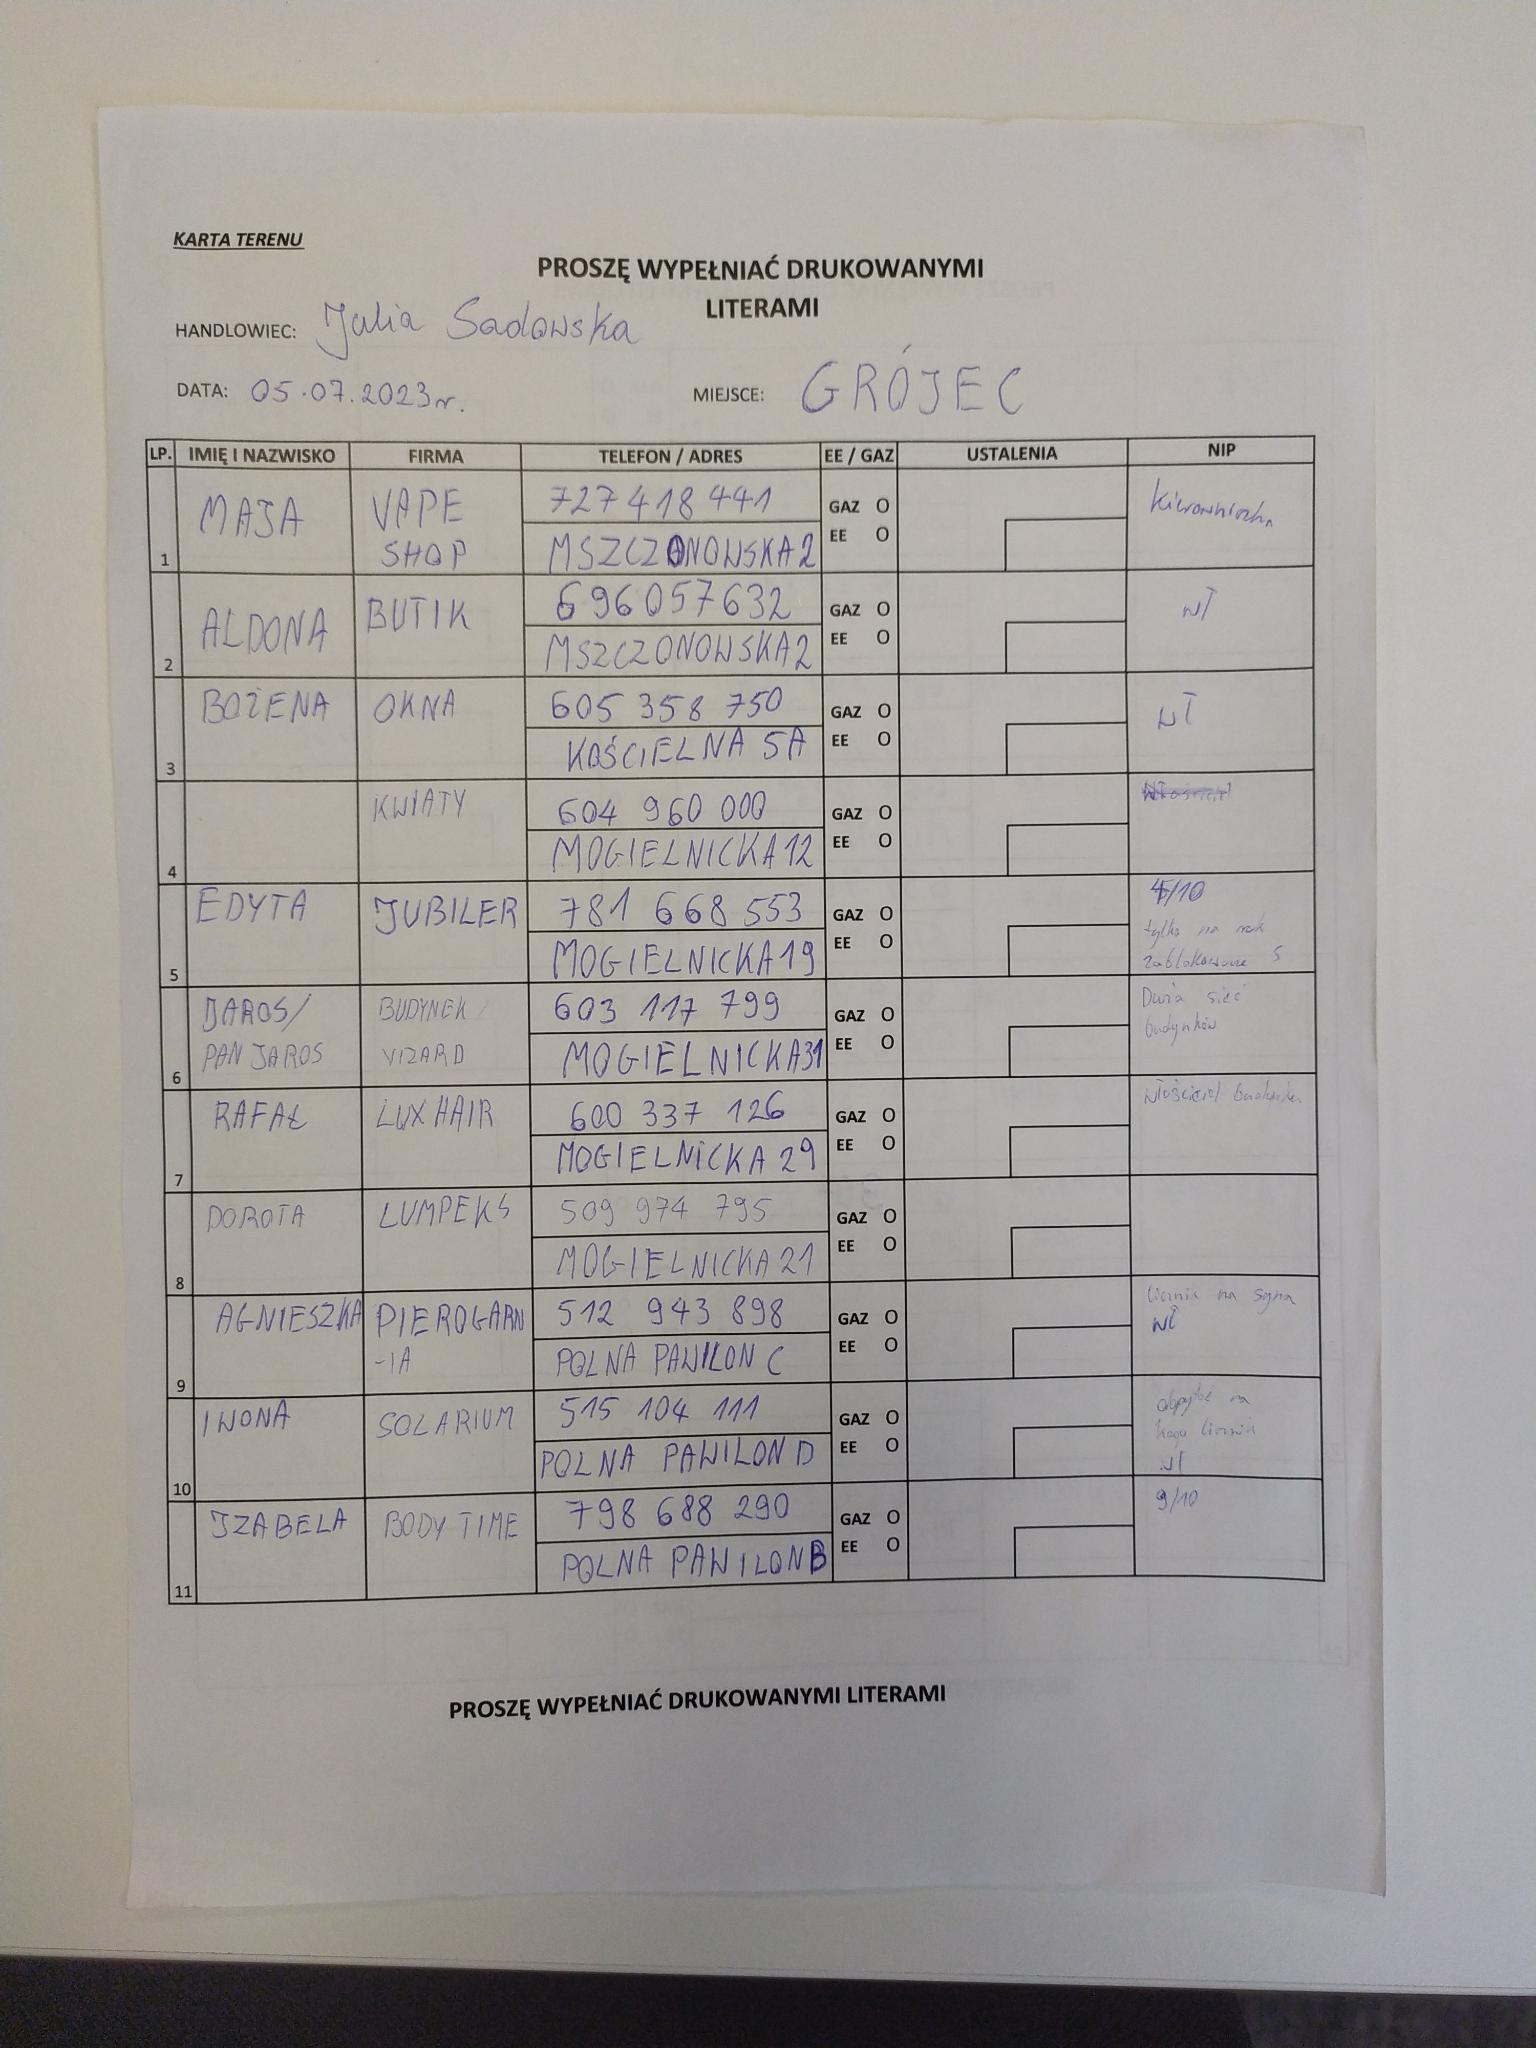 KARTA TERENU
PROSZĘ WYPEŁNIAĆ DRUKOWANYMI
LITERAMI
HANDLOWIEC: Julia Sadowska
DATA: 05.07.2023r. MIEJSCE: GRÓJEC
LP. IMIĘ I NAZWISKO FIRMA TELEFON / ADRES EE / GAZ USTALENIA NIP
1 MAJA VAPE SHOP 727 418 441 MSZCZONOWSKA 2 GAZ O EE O Kierowniczka
2 ALDONA BUTIK 696057632 MSZCZONOWSKA 2 GAZ O EE O wł
3 BOŻENA OKNA 605 358 750 KOŚCIELNA 5A GAZ O EE O wł
4 KWIATY 604 960 000 MOGIELNICKA 12 GAZ O EE O
5 EDYTA JUBILER 781 668 553 MOGIELNICKA 19 GAZ O EE O /10 tylko na rok zablokowane
6 JAROS/ PAN JAROS BUDYNEK VIZARD 603 117 799 MOGIELNICKA 31 GAZ O EE O Duża sieć budynków
7 RAFAŁ LUX HAIR 600 337 126 MOGIELNICKA 29 GAZ O EE O Właściciel budynku
8 DOROTA LUMPEKS 509 974 795 MOGIELNICKA 21 GAZ O EE O
9 AGNIESZKA PIEROGARN -IA 512 943 898 POLNA PAWILON C GAZ O EE O licznik na syna wł
10 IWONA SOLARIUM 515 104 111 POLNA PAWILON D GAZ O EE O dopytać na kogo licznik wł
11 IZABELA BODY TIME 798 688 290 POLNA PAWILON B GAZ O EE O 9/10
PROSZĘ WYPEŁNIAĆ DRUKOWANYMI LITERAMI